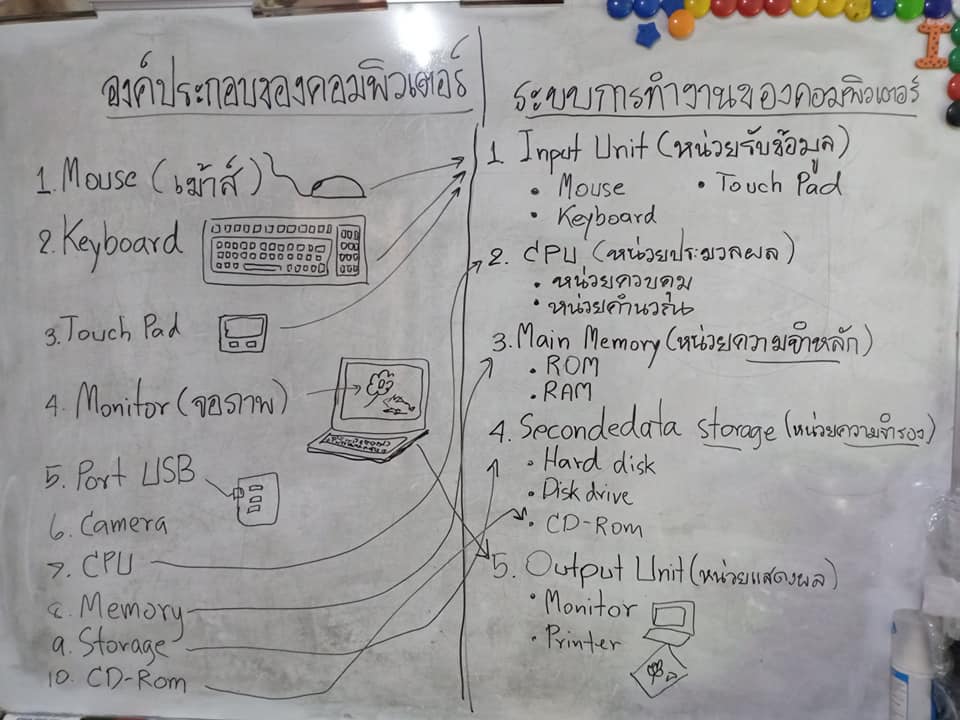 องค์ประกอบของคอมพิวเตอร์
1. Mouse (เม้าส์)
2. Keyboard
3. Touch Pad
4. Monitor (จอภาพ)
5. Port USB
6. Camera
7. CPU
8. Memory
9. Storage
10. CD-Rom
ระบบการทำงานของคอมพิวเตอร์
1 Input Unit (หน่วยรับข้อมูล)
• Mouse • Touch Pad
• Keyboard
2. CPU (หน่วยประมวลผล)
• หน่วยควบคุม
• หน่วยคำนวณ
3. Main Memory (หน่วยความจำหลัก)
• ROM
• RAM
4. Secondedata Storage (หน่วยความจำรอง)
• Hard disk
• Disk drive
• CD-Rom
5. Output Unit (หน่วยแสดงผล)
• Monitor
• Printer
I